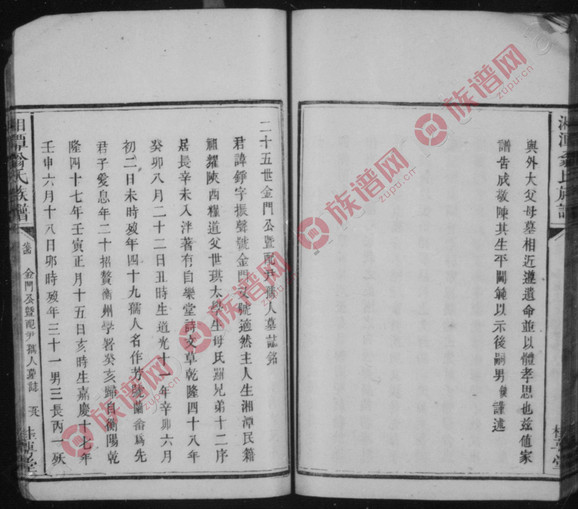 與外大父母墓相近遵遺命並以體孝思也兹值家
譜告成敬陳其生平閫範以示後嗣男 謹述
二十五世金門公暨配尹孺人墓誌銘
君諱錚字振聲號金門又號適然主人生湘潭民籍
祖耀陝西糧道父世琪太學生母氏羅兄弟十二序
居長辛未入泮著有自樂堂詩文草乾隆四十八年
癸卯八月二十二日丑時生道光十一年辛卯六月
初二日未時歿年四十九孺人名作 號蘭 為先
君子愛息年二十招贅衡州學署癸亥歸自衡陽乾
隆四十七年壬寅正月十五日亥時生嘉慶十七年
壬申六月十八日卯時歿年三十一男三長丙一歿
湘潭 氏族譜
金門公暨配尹孺人墓誌
族谱网
zupu.cn